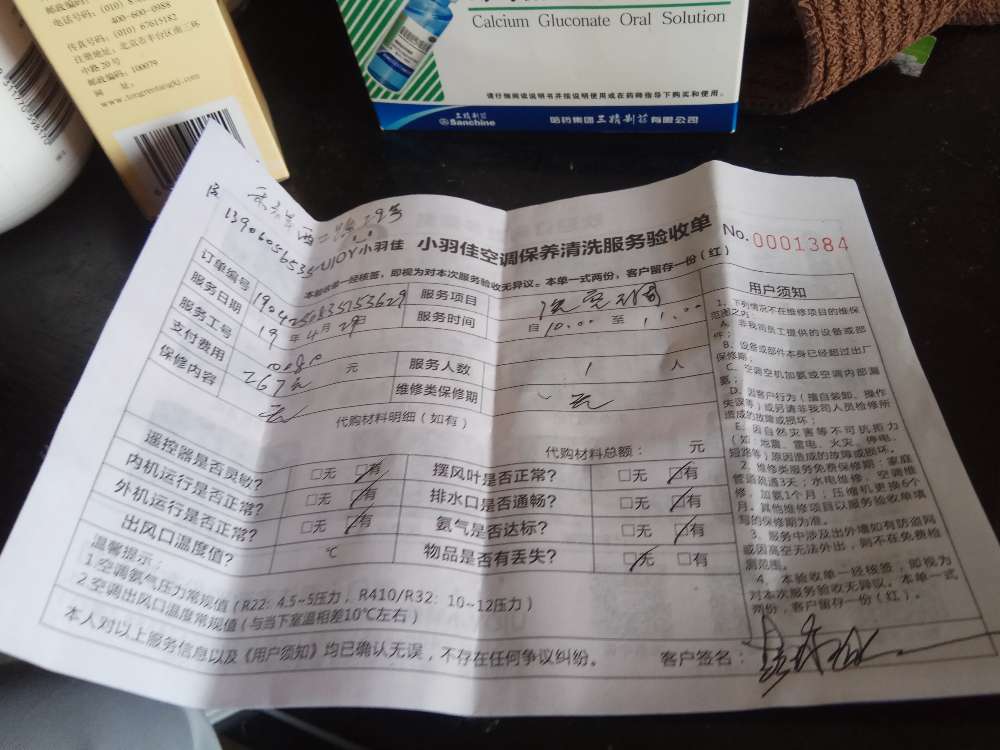 邮政编码:
电话号码:(010)
400-600-0988
传真号码:(010) 67615182
注册地址:北京市丰台区南三环
中路20号
邮政编码:100079
网 址:
www.tongrentangkj.com
Calcium Gluconate Oral Solution
请仔细阅读说明书并按说明使用或在药师指导下购买和使用。
三精制药
Sanchine
哈药集团三精制药有限公司
西二路29号
13906056535
UJOY小羽佳 小羽佳空调保养清洗服务验收单
No.0001384
本验收单一经核签,即视为对本次服务验收无异议。本单一式两份,客户留存一份(红)
订单编号 服务项目 洗空调
服务日期 19年4月29日 服务时间 自 10:00 至 11:00
服务工号 服务人数 1 人
支付费用 267元 元 维修类保修期 无
保修内容 无
代购材料明细(如有)
代购材料总额: 元
遥控器是否灵敏? □无 □有 摆风叶是否正常? □无 □有
内机运行是否正常? □无 □有 排水口是否通畅? □无 □有
外机运行是否正常? □无 □有 氨气是否达标? □无 □有
出风口温度值? ℃ 物品是否有丢失? □无 □有
温馨提示:
1.空调氨气压力常规值(R22:4.5~5压力,R410/R32:10~12压力)
2.空调出风口温度常规值(与当下室温相差10℃左右)
本人对以上服务信息以及《用户须知》均已确认无误,不存在任何争议纠纷。 客户签名:
用户须知
1、下列情况不在维修项目的维保
范围之内:
A、非我司员工提供的设备或部
件;
B、设备或部件本身已经超过出厂
保修期;
C、空调空机加氨或空调内部漏
氨;
D、因客户行为(擅自装卸、操作
失误等)或另请非我司人员检修所
造成的故障或损坏;
E、因自然灾害等不可抗拒力
(如:地震、雷电、火灾、停电、
短路等)原因造成的故障或损坏。
2、维修类服务免费保修期:家庭
管道疏通3天;水电维修、空调维
修、加氨1个月;压缩机更换6个
月。其他维修项目以服务验收单填
写的保修期为准。
3、服务中涉及出外墙如有防盗网
或因高空无法外出,则不在免费检
测范围。
4、本验收单一经核签,即视为
对本次服务验收无异议。本单一式
两份,客户留存一份(红)。